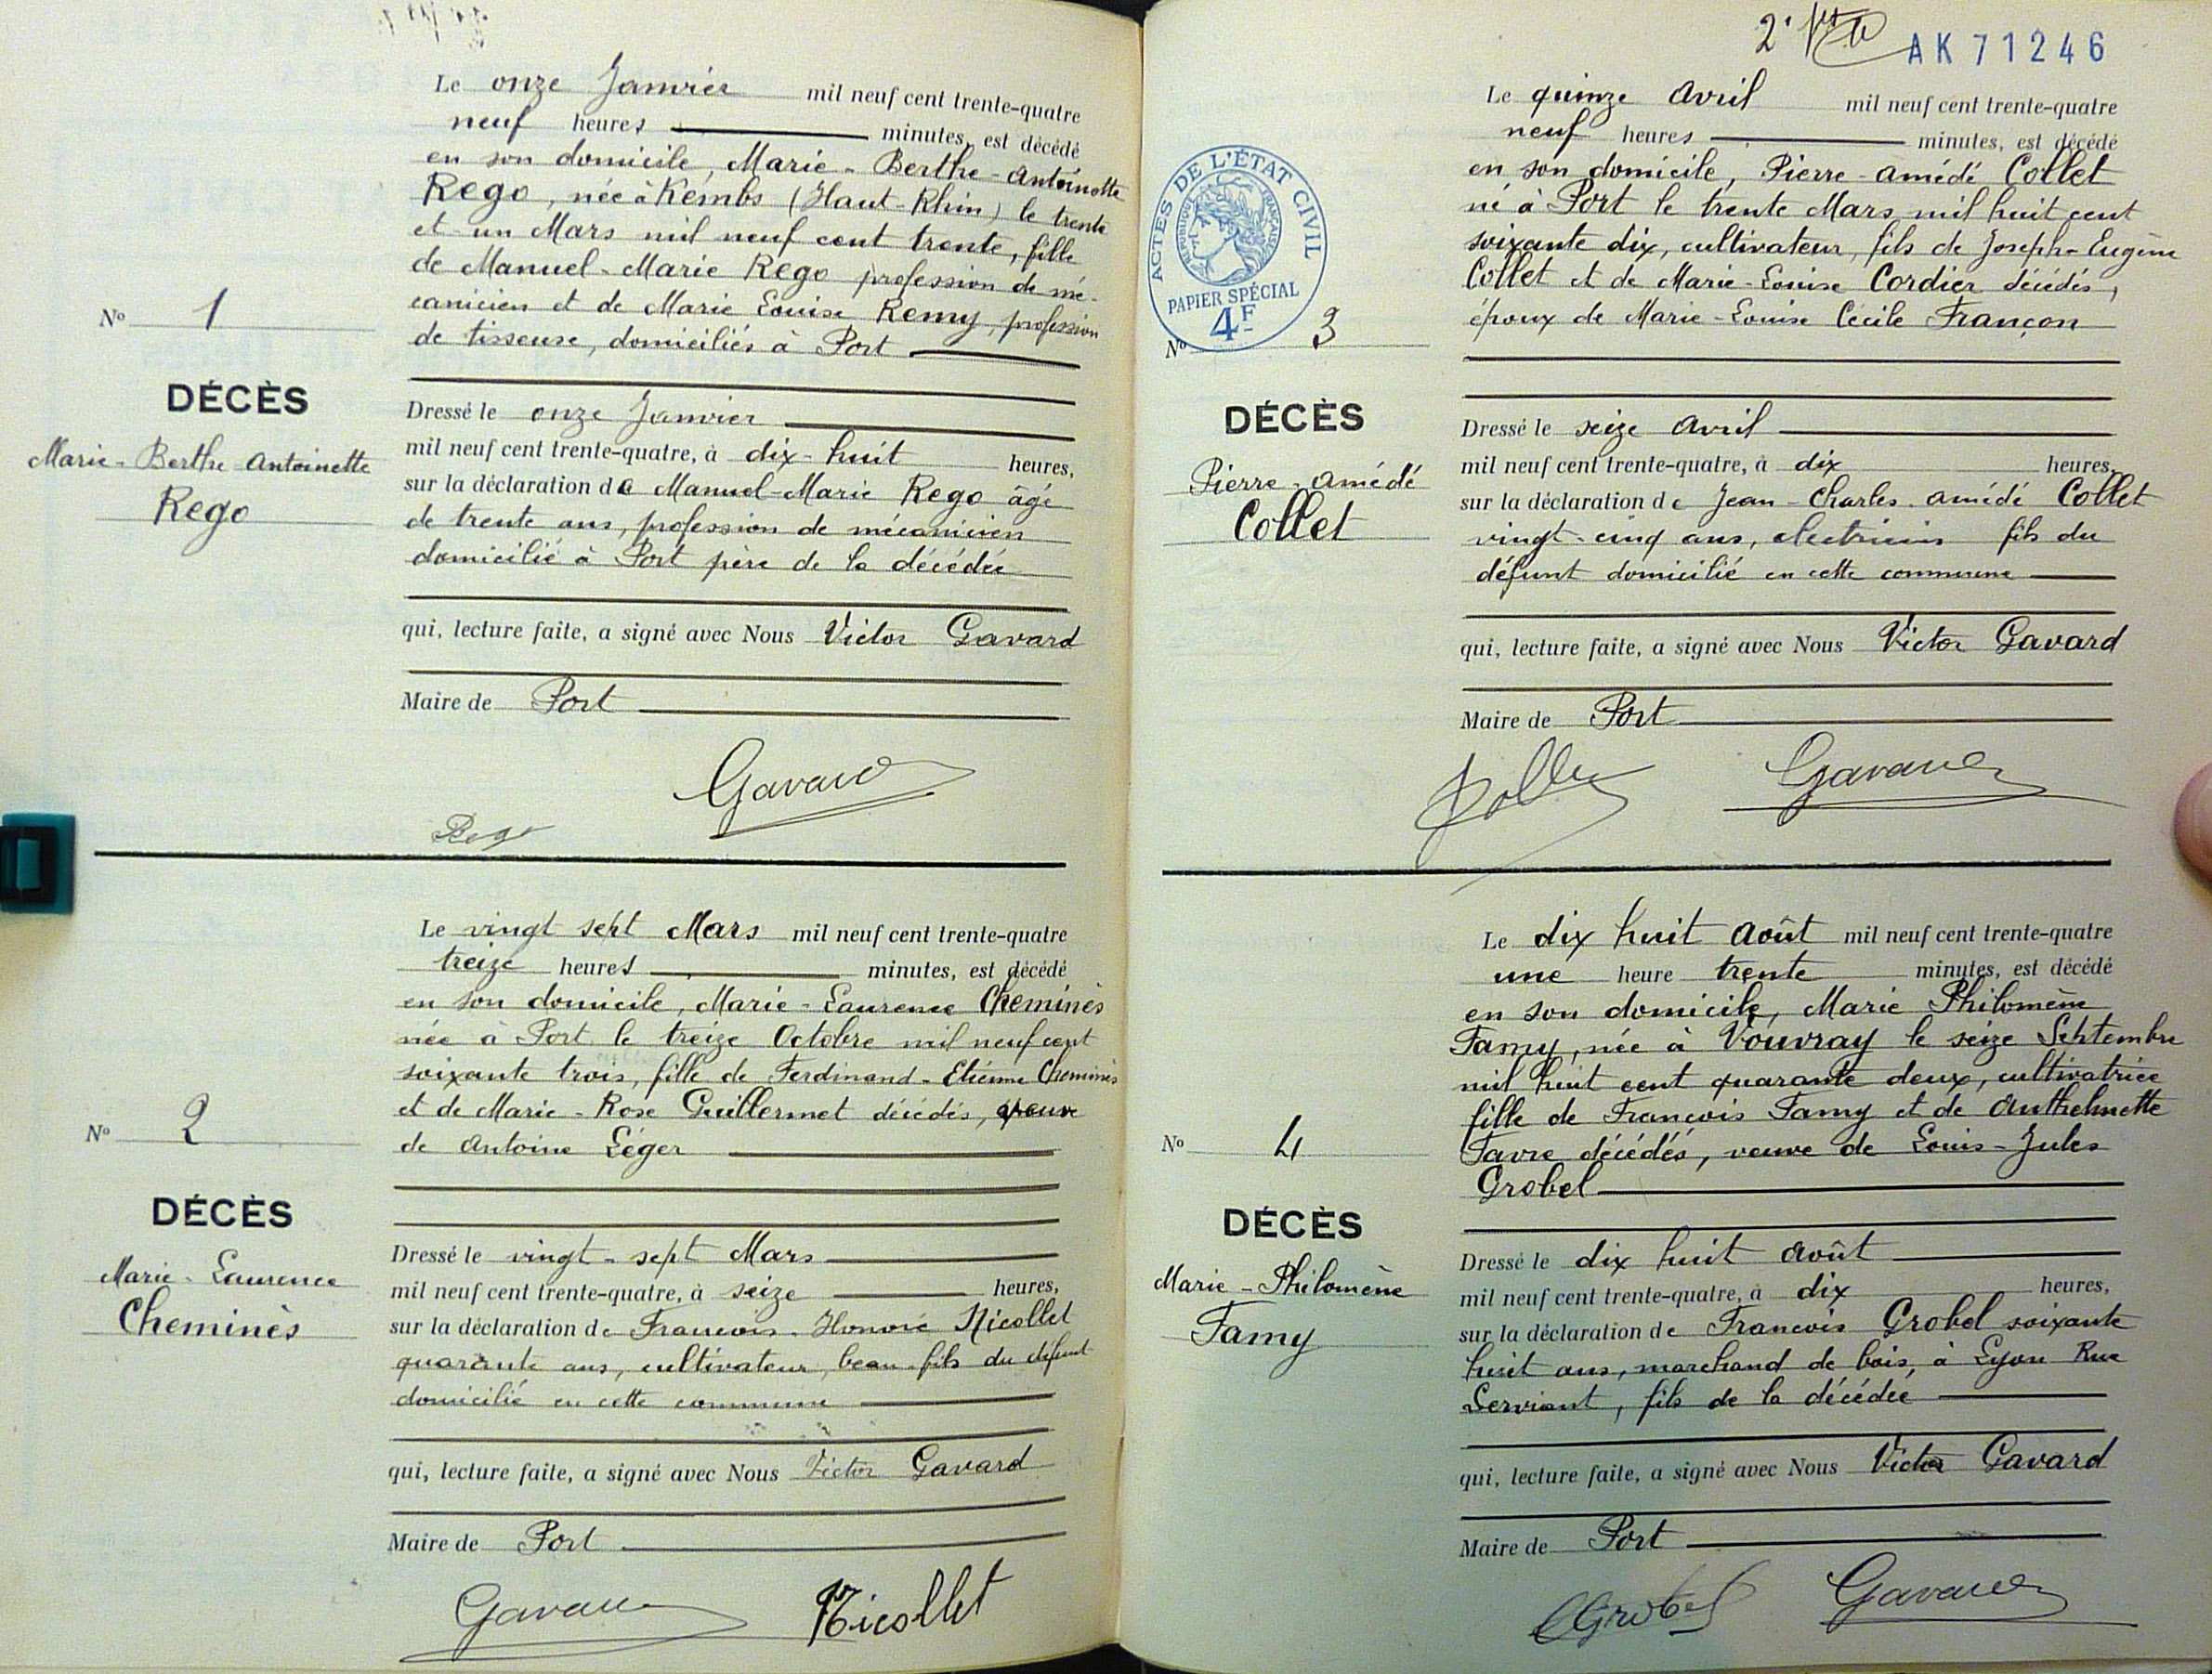 Le onze Janvier mil neuf cent trente-quatre
neuf heures minutes, est décédé
en son domicile, Marie-Berthe-Antoinette
Rego, née à Kembs (Haut-Rhin) le trente
et un Mars mil neuf cent trente, fille
de Manuel-Marie Rego profession de mé-
canicien et de Marie Louise Remy, profession
de tisseuse, domiciliés à Port
No 1
DÉCÈS
Marie-Berthe Antoinette
Rego
Dressé le onze Janvier
mil neuf cent trente-quatre, à dix-huit heures,
sur la déclaration de Manuel-Marie Rego âgé
de trente ans, profession de mécanicien
domicilié à Port père de la décédée
qui, lecture faite, a signé avec Nous Victor Gavard
Maire de Port
Gavard
Rego
Le vingt sept Mars mil neuf cent trente-quatre
treize heures minutes, est décédé
en son domicile, Marie-Laurence Cheminès
née à Port le treize Octobre mil neuf cent
soixante trois, fille de Ferdinand-Etienne Cheminès
et de Marie-Rose Guillermet décédés, veuve
de Antoine Léger
No 2
DÉCÈS
Marie-Laurence
Cheminès
Dressé le vingt-sept Mars
mil neuf cent trente-quatre, à seize heures,
sur la déclaration de Francois-Honoré Nicollet
quarante ans, cultivateur, beau-fils du défunt
domicilié en cette commune
qui, lecture faite, a signé avec Nous Victor Gavard
Maire de Port
Gavard Nicollet
2e
AK 71246
ACTES DE L'ÉTAT CIVIL
RÉPUBLIQUE FRANÇAISE
PAPIER SPÉCIAL
4F
Le quinze Avril mil neuf cent trente-quatre
neuf heures minutes, est décédé
en son domicile, Pierre-Amédé Collet
né à Port le trente Mars mil huit cent
soixante dix, cultivateur, fils de Joseph-Eugène
Collet et de Marie-Louise Cordier décédés,
époux de Marie-Louise Cécile Françon
No 3
DÉCÈS
Pierre-Amédé
Collet
Dressé le seize Avril
mil neuf cent trente-quatre, à dix heures,
sur la déclaration de Jean-Charles-Amédé Collet
vingt-cinq ans, electricien fils du
défunt domicilié en cette commune
qui, lecture faite, a signé avec Nous Victor Gavard
Maire de Port
Gavard
Le dix huit Août mil neuf cent trente-quatre
une heure trente minutes, est décédé
en son domicile, Marie Philomène
Famy, née à Vouvray le seize Septembre
mil huit cent quarante deux, cultivatrice
fille de Francois Famy et de Anthelmette
Favre décédés, veuve de Louis-Jules
Grobel
No 4
DÉCÈS
Marie-Philomène
Famy
Dressé le dix huit Août
mil neuf cent trente-quatre, à dix heures,
sur la déclaration de Francois Grobel soixante
huit ans, marchand de bois, à Lyon Rue
Serviant, fils de la décédée
qui, lecture faite, a signé avec Nous Victor Gavard
Maire de Port
Grobel Gavard